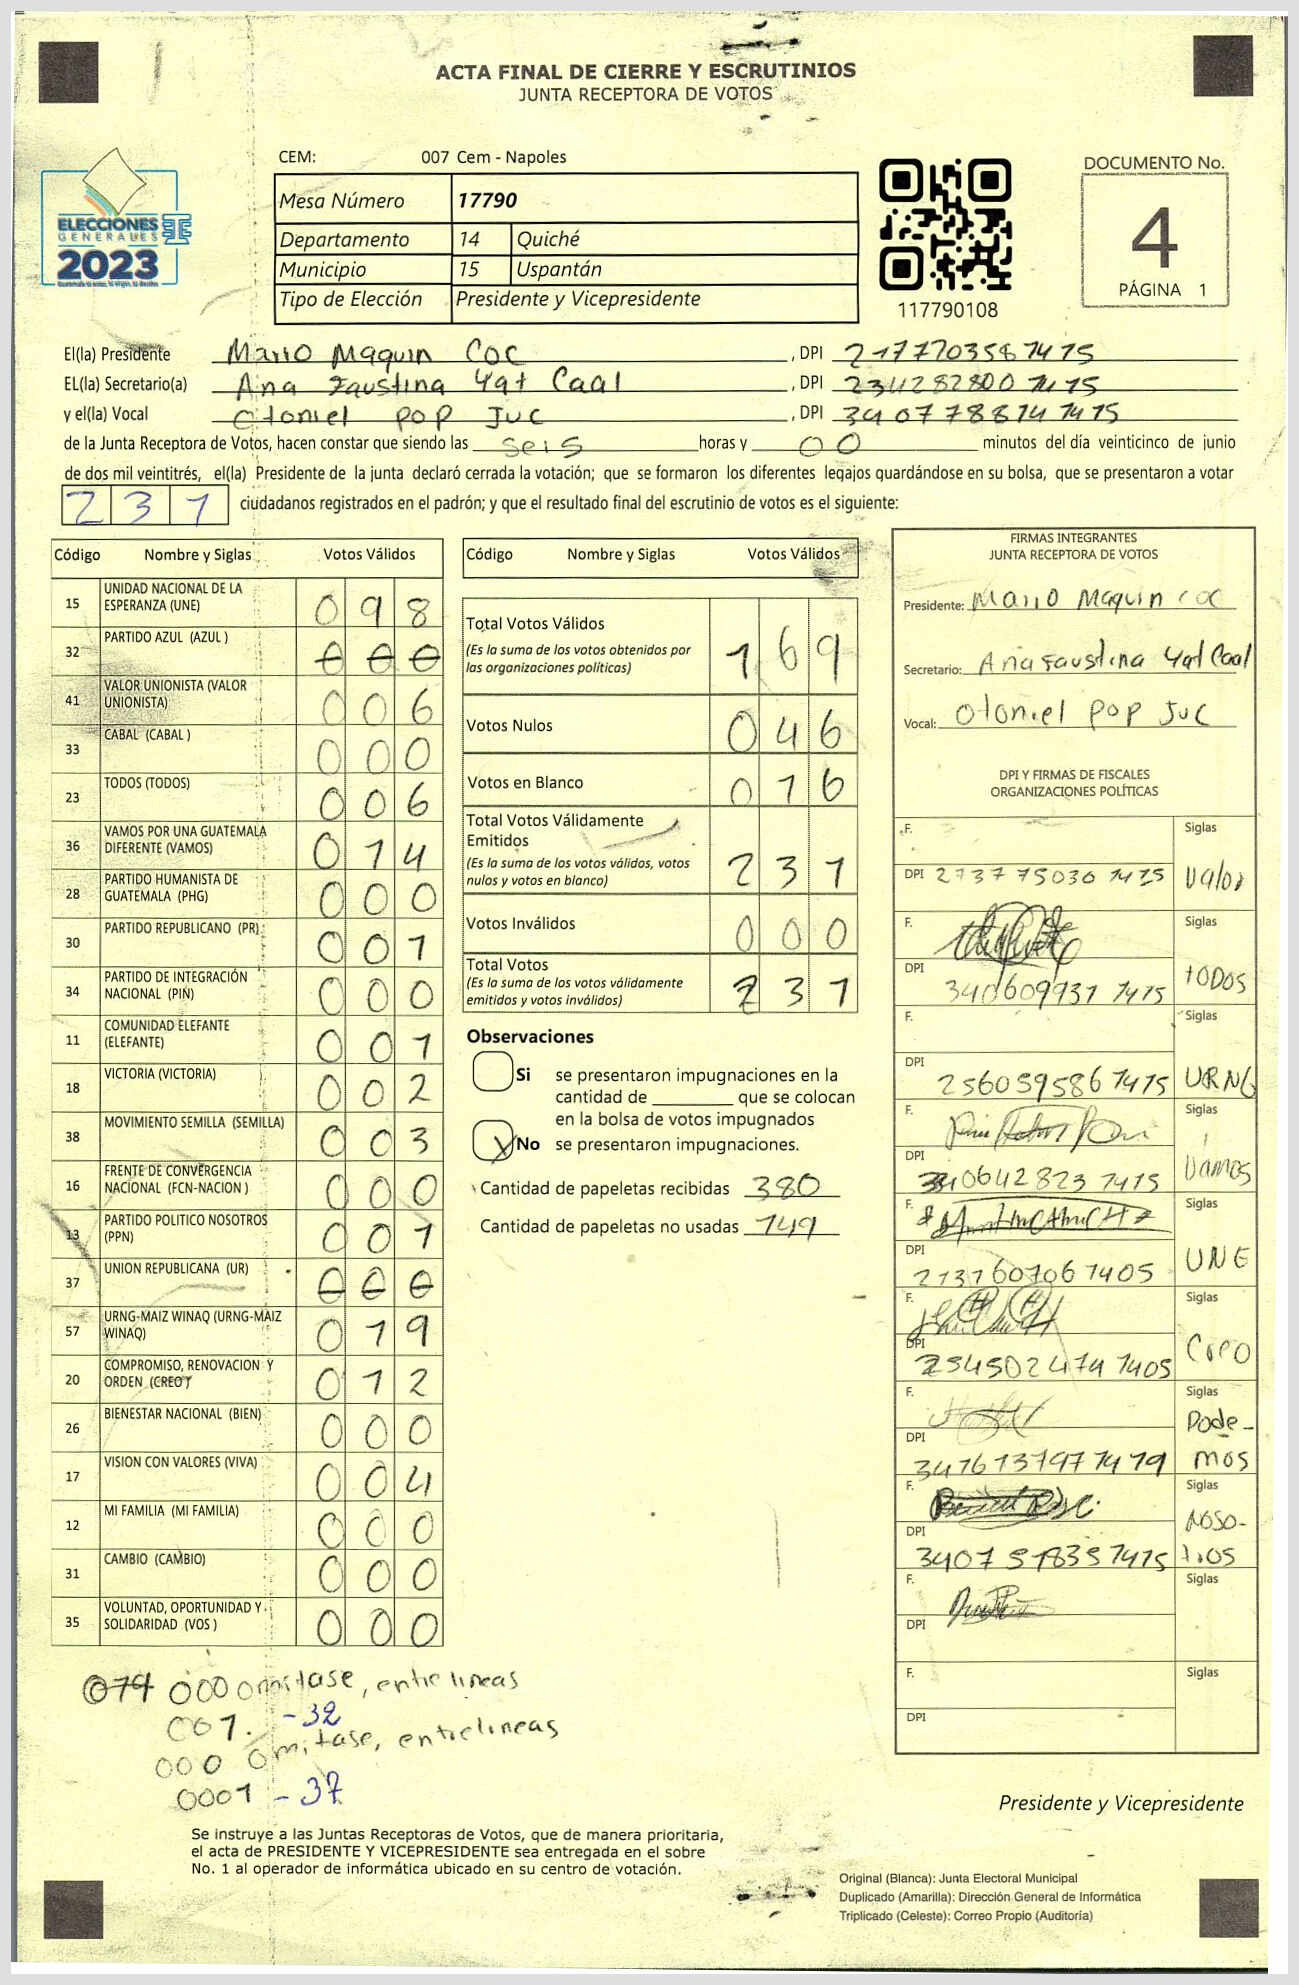 ACTA FINAL DE CIERRE Y ESCRUTINIOS
JUNTA RECEPTORA DE VOTOS
CEM: 007 Cem - Napoles
DOCUMENTO No.
4
PÁGINA 1
ELECCIONES
GENERALES
2023
Mesa Número 17790
Departamento 14 Quiché
Municipio 15 Uspantán
Tipo de Elección Presidente y Vicepresidente
117790108
El(la) Presidente Mario Maquin Coc , DPI 2177703587415
EL(la) Secretario(a) Ana Faustina Yat Caal , DPI 2342828001415
y el(la) Vocal Otoniel pop Juc , DPI 3407788141415
de la Junta Receptora de Votos, hacen constar que siendo las seis horas y 00 minutos del día veinticinco de junio
de dos mil veintitrés, el(la) Presidente de la junta declaró cerrada la votación; que se formaron los diferentes legajos guardándose en su bolsa, que se presentaron a votar
237 ciudadanos registrados en el padrón; y que el resultado final del escrutinio de votos es el siguiente:
Código Nombre y Siglas Votos Válidos
15 UNIDAD NACIONAL DE LA ESPERANZA (UNE) 098
32 PARTIDO AZUL (AZUL ) 000
41 VALOR UNIONISTA (VALOR UNIONISTA) 006
33 CABAL (CABAL ) 000
23 TODOS (TODOS) 006
36 VAMOS POR UNA GUATEMALA DIFERENTE (VAMOS) 014
28 PARTIDO HUMANISTA DE GUATEMALA (PHG) 000
30 PARTIDO REPUBLICANO (PR) 001
34 PARTIDO DE INTEGRACIÓN NACIONAL (PIN) 000
11 COMUNIDAD ELEFANTE (ELEFANTE) 001
18 VICTORIA (VICTORIA) 002
38 MOVIMIENTO SEMILLA (SEMILLA) 003
16 FRENTE DE CONVERGENCIA NACIONAL (FCN-NACION ) 000
13 PARTIDO POLITICO NOSOTROS (PPN) 001
37 UNION REPUBLICANA (UR) 000
57 URNG-MAIZ WINAQ (URNG-MAIZ WINAQ) 019
20 COMPROMISO, RENOVACION Y ORDEN (CREO ) 012
26 BIENESTAR NACIONAL (BIEN) 000
17 VISION CON VALORES (VIVA) 004
12 MI FAMILIA (MI FAMILIA) 000
31 CAMBIO (CAMBIO) 000
35 VOLUNTAD, OPORTUNIDAD Y SOLIDARIDAD (VOS ) 000
074 000 omitase, entre lineas
001. -32
000 omitase, entrelineas
0001 - 37
Código Nombre y Siglas Votos Válidos
Total Votos Válidos 169
(Es la suma de los votos obtenidos por
las organizaciones políticas)
Votos Nulos 046
Votos en Blanco 016
Total Votos Válidamente
Emitidos 231
(Es la suma de los votos válidos, votos
nulos y votos en blanco)
Votos Inválidos 000
Total Votos 231
(Es la suma de los votos válidamente
emitidos y votos inválidos)
Observaciones
Si se presentaron impugnaciones en la
cantidad de que se colocan
en la bolsa de votos impugnados
X No se presentaron impugnaciones.
Cantidad de papeletas recibidas 380
Cantidad de papeletas no usadas 149
FIRMAS INTEGRANTES
JUNTA RECEPTORA DE VOTOS
Presidente: Mario Maquin coc
Secretario: Ana Faustina Yat Caal
Vocal: Otoniel pop Juc
DPI Y FIRMAS DE FISCALES
ORGANIZACIONES POLÍTICAS
F. Siglas
DPI 2737750301415 Valor
F. Siglas
DPI 3406099371415 TODOS
F. Siglas
DPI 2560595867415 URNG
F. Siglas
DPI 3406428231415 Vamos
F. Siglas
DPI 2131607061405 UNE
F. Siglas
DPI 2545024741405 Creo
F. Siglas
DPI 3416137971419 Pode-
mos
F. Siglas
DPI 3407518357415 NOSO-
tros
F. Siglas
DPI
F. Siglas
DPI
Presidente y Vicepresidente
Se instruye a las Juntas Receptoras de Votos, que de manera prioritaria,
el acta de PRESIDENTE Y VICEPRESIDENTE sea entregada en el sobre
No. 1 al operador de informática ubicado en su centro de votación.
Original (Blanca): Junta Electoral Municipal
Duplicado (Amarilla): Dirección General de Informática
Triplicado (Celeste): Correo Propio (Auditoría)